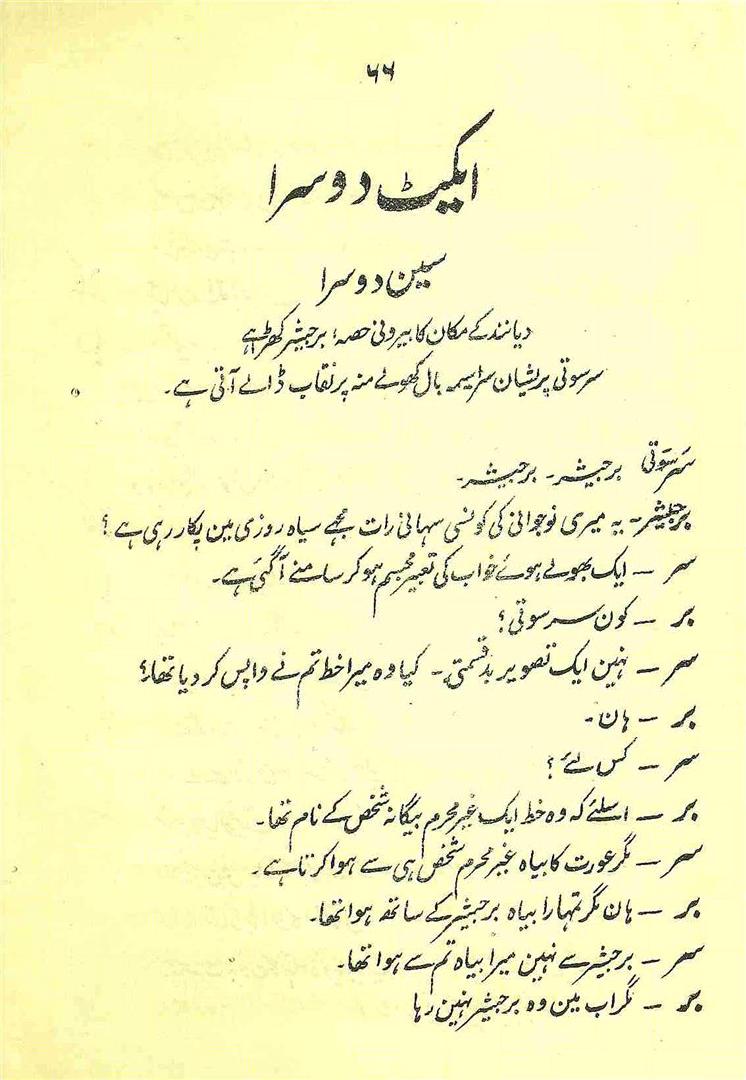 ۶۶
ایکٹ دوسرا
سین دوسرا
دیانند کے مکان کا بیرونی حصہ؛ برجیشر کھڑا ہے
سرسوتی پریشان سراسیمہ بال کھولے منہ پر نقاب ڈالے آتی ہے۔
سرسوتی برجیشر۔ برجیشر۔
برجیشر۔ یہ میری نوجوانی کی کونسی سہانی رات مجھے سیاہ روزی مین پکار رہی ہے؟
سر ـ ایک بھولے ہوئے خواب کی تعبیر مجسم ہو کر سامنے آگئی ہے۔
بر ـ کون سرسوتی؟
سر ـ نہین ایک تصویر بدقسمتی۔ کیا وہ میرا خط تم نے واپس کر دیا تھا؟
بر ـ ہان۔
سر ـ کس لئے؟
بر ـ اسلئے کہ وہ خط ایک غیر محرم بیگانہ شخص کے نام تھا۔
سر ـ مگر عورت کا بیاہ غیر محرم شخص ہی سے ہوا کرتا ہے۔
بر ـ ہان مگر تمہارا بیاہ برجیشر کے ساتھ ہوا تھا۔
سر ـ برجیشر سے نہین میرا بیاہ تم سے ہوا تھا۔
بر ـ مگر اب مین وہ برجیشر نہین رہا